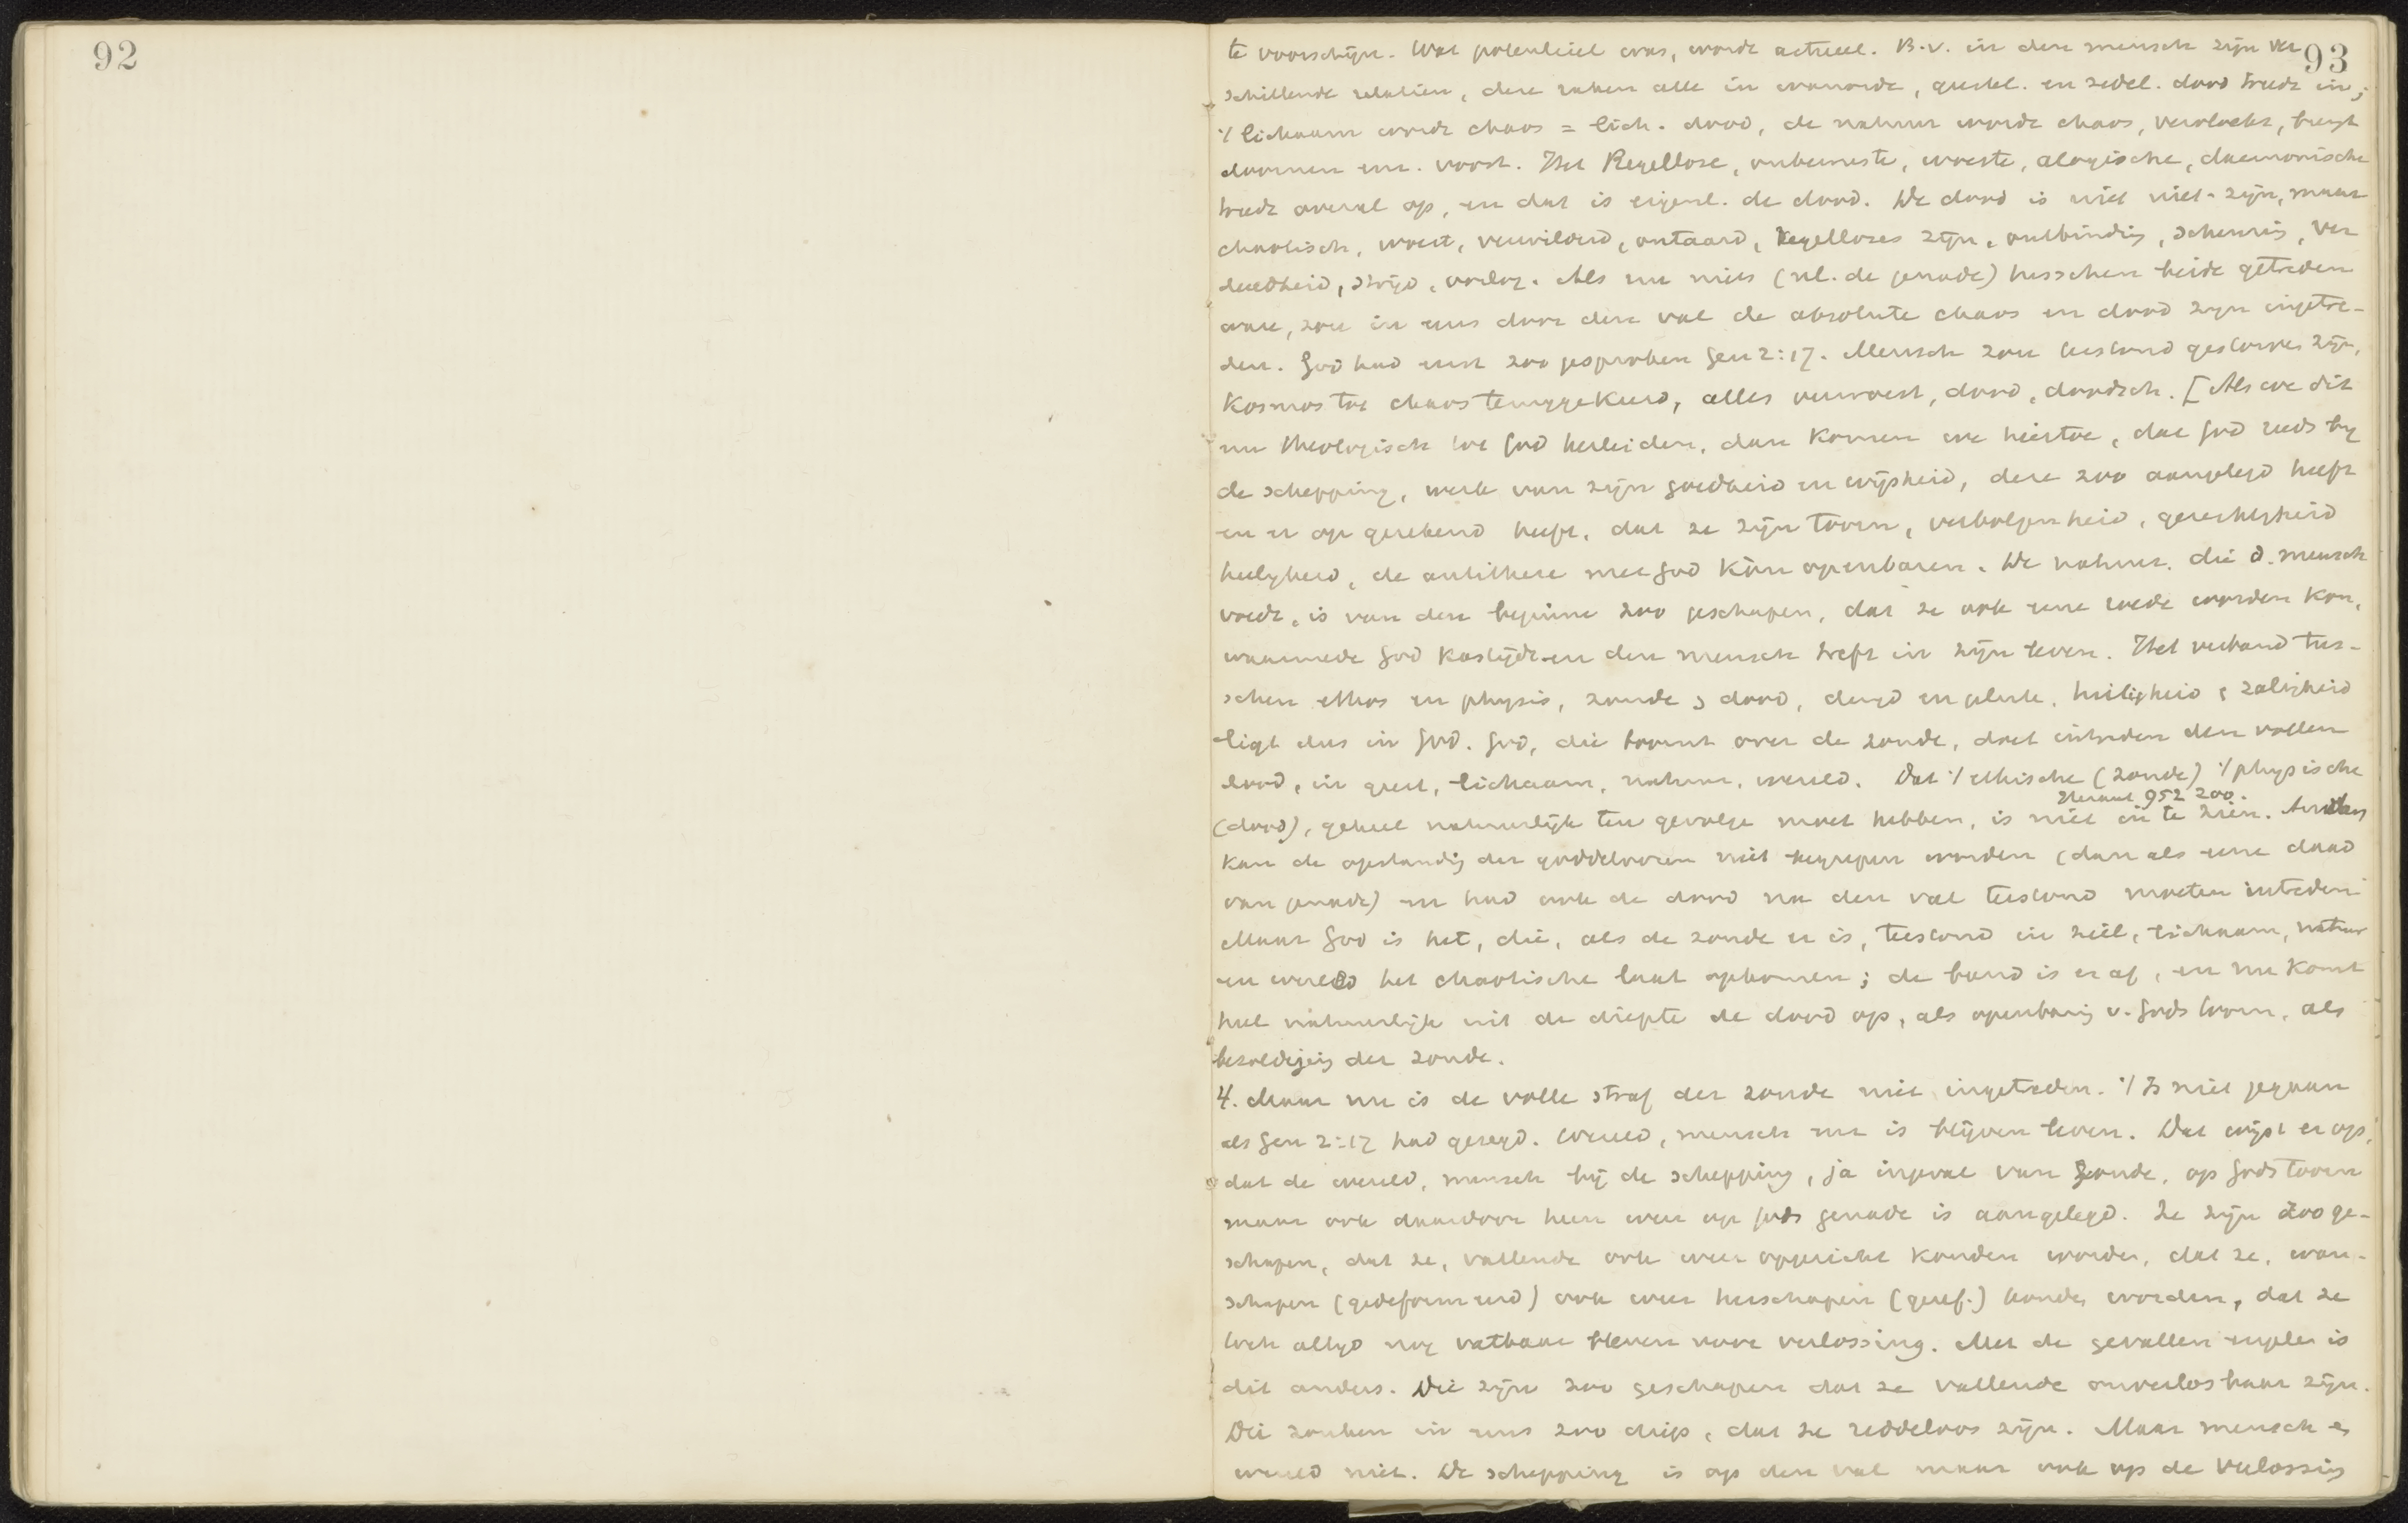 92
93
te voorschijn. Wat potentieel was, wordt actueel. B.v. in den mensch zijn ver
schillende relatiën, deze raken alle in wanorde, geestel. en zedel. dood treedt in;
't lichaam wordt chaos = lich. dood, de natuur wordt chaos, vervloekt, brengt
doornen enz. voort. Het Regellose, onbewuste, woeste, alogische, daemonische
treedt overal op, en dat is eigenl. de dood. De dood is niet niet-zijn, maar
chaotisch, woest, verwilderd, ontaard, Regelloses zijn, ontbinding, scheuring, ver
deeldheid, strijd, oorlog. Als nu niets (nl. de genade) tusschen beide getreden
ware, zou in eens door den val de absolute chaos en dood zijn ingetre-
den. God had eerst zoo gesproken Gen 2:17. Mensch zou terstond gestorven zijn,
Kosmos tot chaos teruggekeerd, alles verwoest, dood, doodsch. [Als we dit
nu theologisch tot God herleiden, dan komen we hiertoe, dat God reeds by
de schepping, werk van zijn goedheid en wijsheid, deze zoo aangelegd heeft
en er op gerekend heeft, dat ze zijn toorn, verbolgenheid, gerechtigheid
heiligheid, de antithese met God kòn openbaren. De natuur, die d. mensch
voedt, is van den beginne zoo geschapen, dat ze ook eene roede worden kon,
waarmede God kastijdt en den mensch treft in zijn leven. Het verband tus-
schen ethos en physis, zonde & dood, deugd en geluk, heiligheid & zaligheid
ligt dus in God. God, die toornt over de zonde, doet intreden den vollen
dood, in geest, lichaam, natuur, wereld. Dat 't ethische (zonde) 't physische
Heraut 952 zoo.
(dood), geheel natuurlijk ten gevolge moet hebben, is niet in te zien. Anders
kan de opstanding der goddeloozen niet begrepen worden (dan als eene daad
van genade) en had ook de dood na den val terstond moeten intreden
Maar God is het, die, als de zonde er is, terstond in ziel, lichaam, natuur
en wereld het chaotische laat opkomen; de band is er af, en nu komt
heel natuurlijk uit de diepte de dood op, als openbaring v. Gods toorn, als
bezoldiging der zonde.
4. Maar nu is de volle straf der zonde niet ingetreden. 't Is niet gegaan
als Gen 2:17 had gezegd. Wereld, mensch enz is blijven leven. Dat wijst er op,
dat de wereld, mensch bij de schepping, ja ingeval van zonde, op Gods toorn
maar ook daardoor heen weer op Gods genade is aangelegd. Ze zijn zoo ge-
schapen, dat ze, vallende ook weer opgericht konden worden, dat ze, wan-
schapen (gedeformeerd) ook weer herschapen (geref.) konden worden, dat ze
toch altyd nog vatbaar bleven voor verlossing. Met de gevallen engelen is
dit anders. Die zijn zoo geschapen dat ze vallende onverlosbaar zijn.
Die zonken in eens zoo diep, dat ze reddeloos zijn. Maar mensch en
wereld niet. De schepping is op den val maar ook op de verlossing